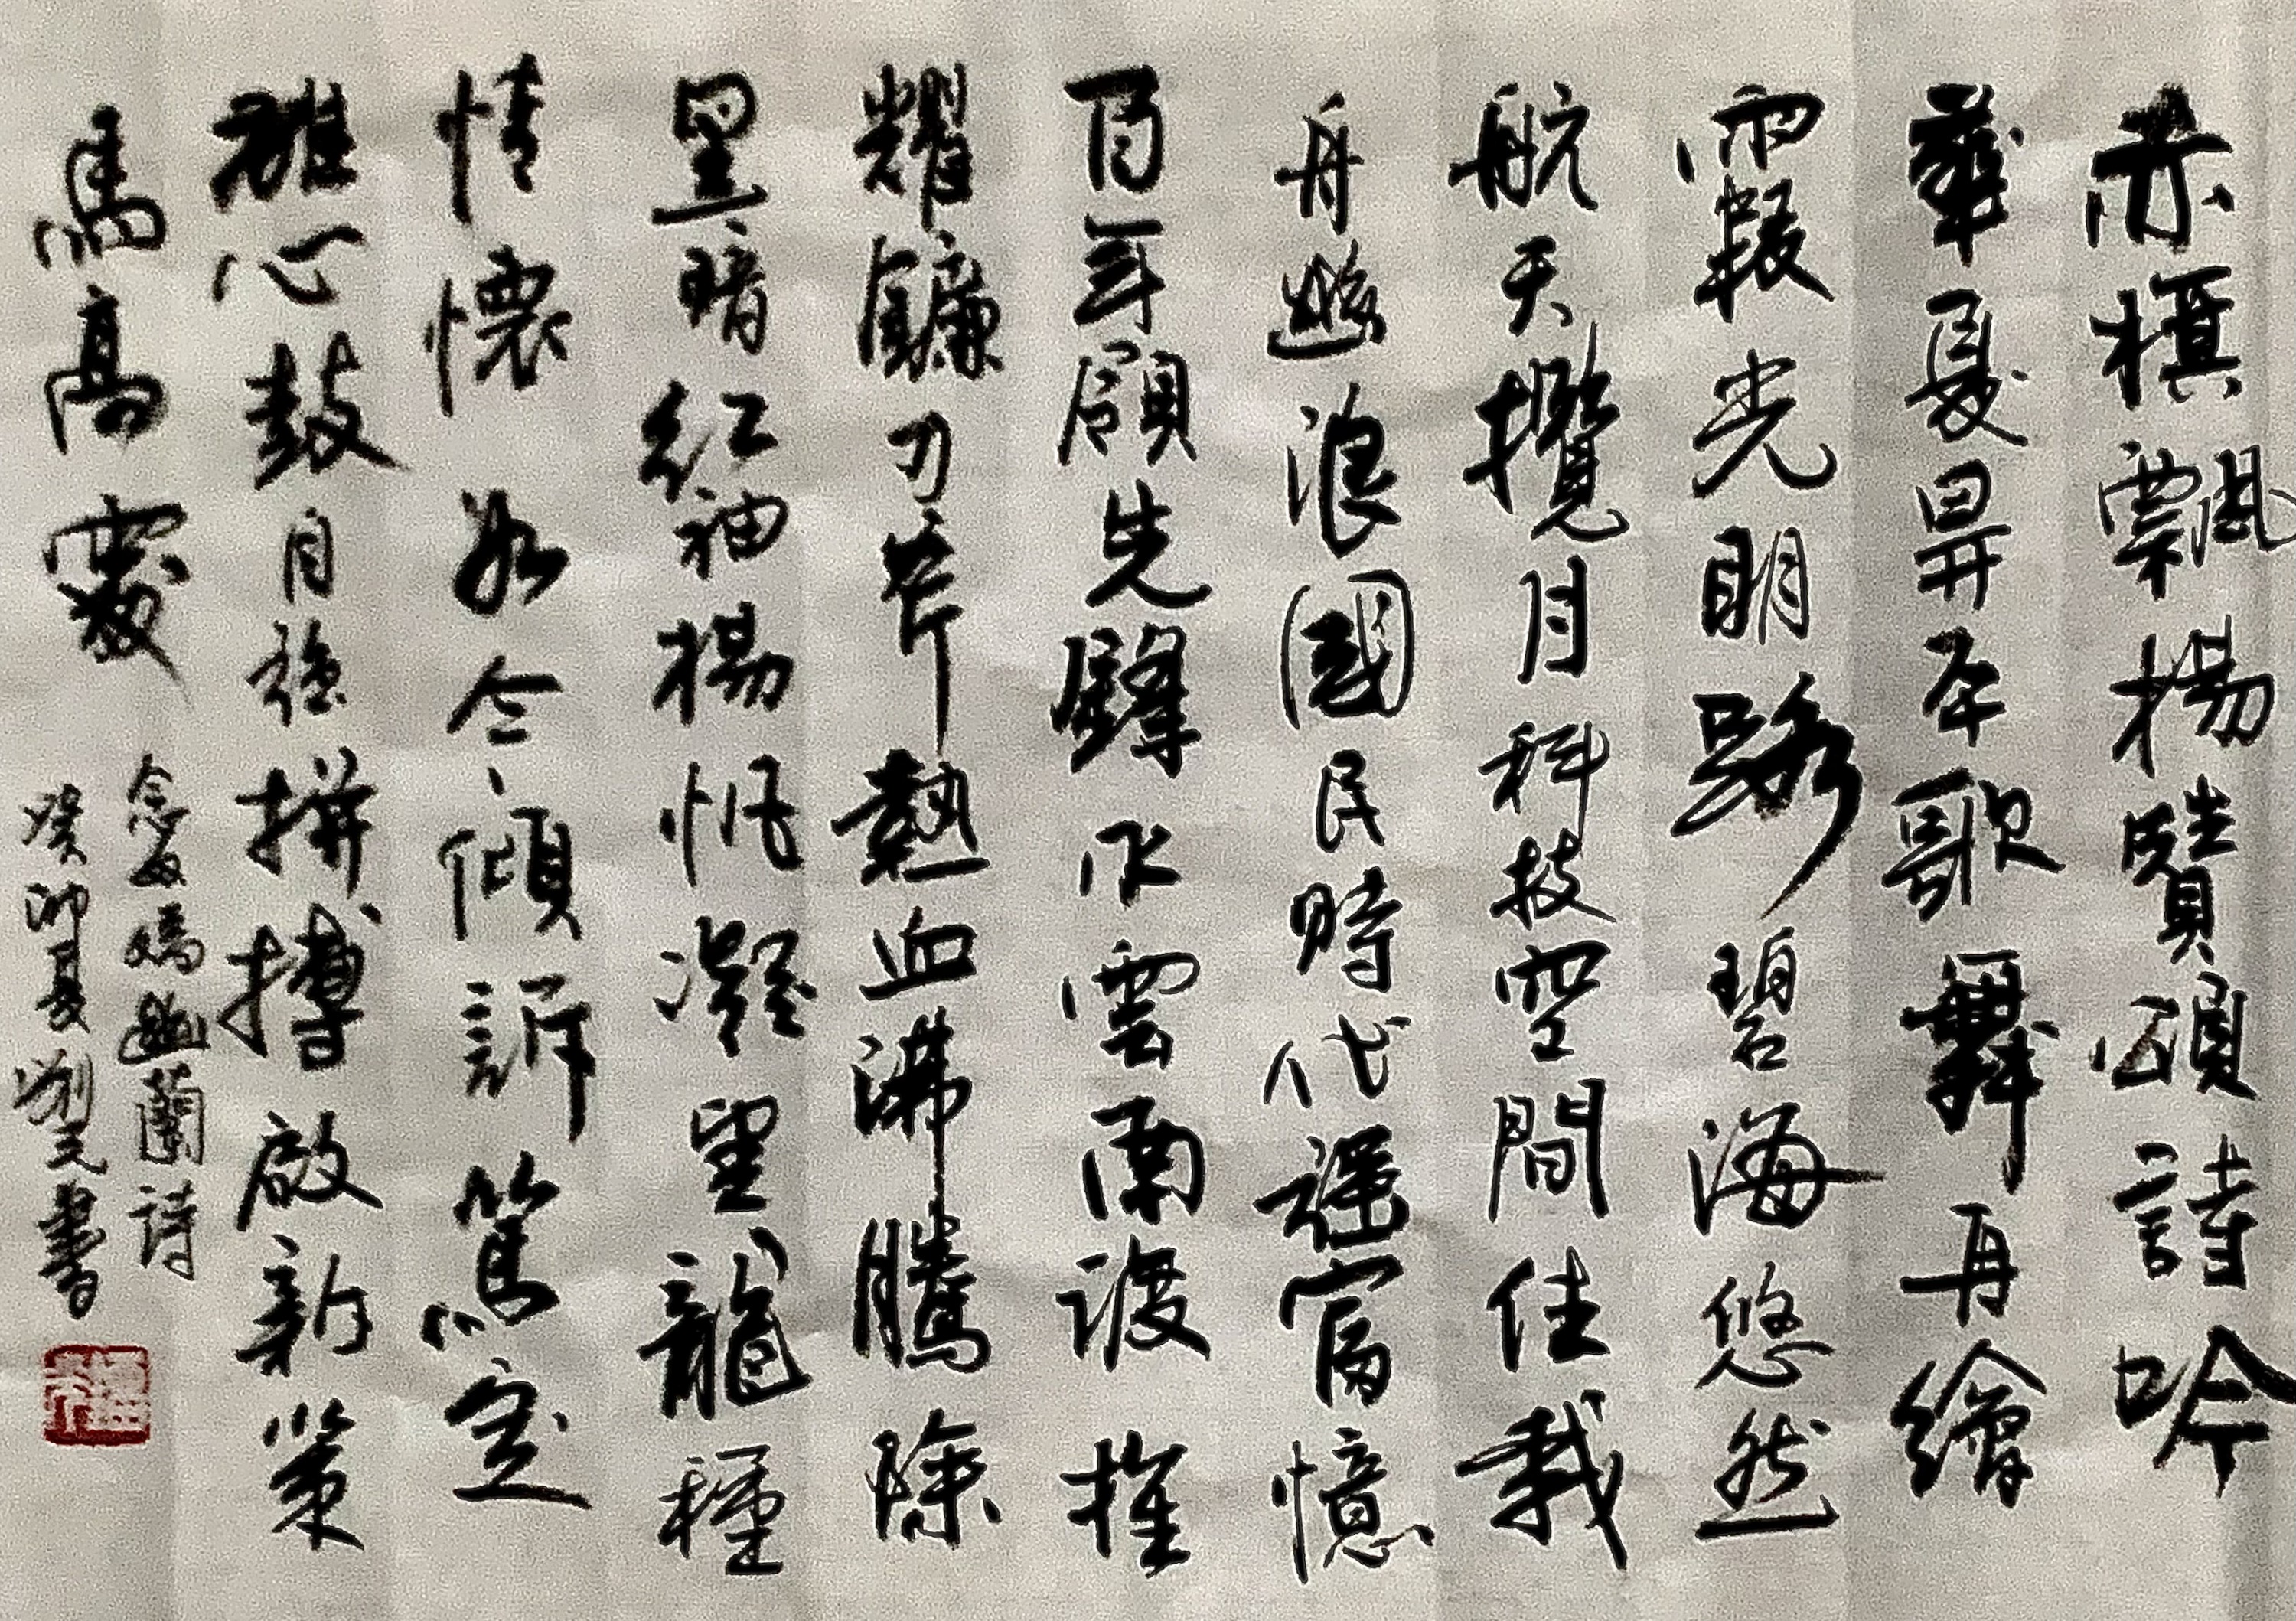 赤旗飄揚讚頌詩吟
華夏昇平歌舞再繪
霞光明路碧海悠然
航天攬月科技空間佳載
舟遊浪國民時代謠富憶
百年領先鋒風雲雨渡摧
耀鐮刀斧熱血沸騰除
黑暗紅袖揚帆凝望龍種
情懷如今傾訴篤定
雄心鼓自強拼搏啟新策
馬高處
念奴嬌幽蘭詩
癸卯夏劉元書